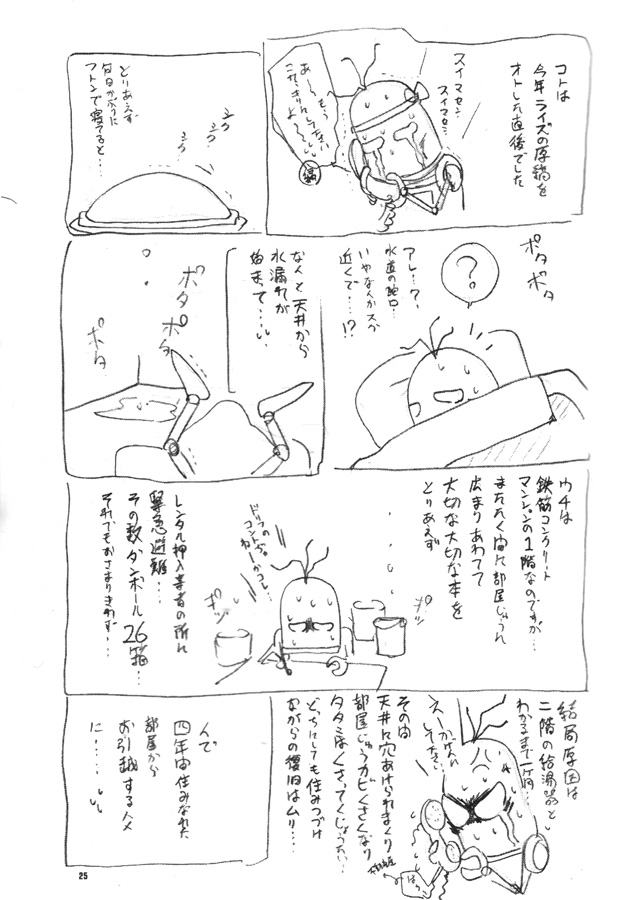 コトは
今年ライズの原稿を
オトした直後でした
スイマセン
スイマセン…
あ〜もう
よ〜
編
とりあえず
フトンで寝てると…
ポタ
ポタ
?
アレ…?
水道の蛇口…
近くで…!?
なんと天井から
水漏れが
始まって……
ポタ
ポタ
ポタ
ウチは
鉄筋コンクリート
マンションの1階なのですが…
またたく間に部屋じゅうに
広まりあわてて
大切な大切な本を
とりあえず
ポツ
ドリフの
コントかコレ…
ポツ
レンタル押入業者の所に
緊急避難…
その数ダンボール26箱…
それでもおさまりきらず…
結局原因は
二階の給湯器と
わかるまで一ヶ月…
その間
天井に穴あけられまくり
部屋じゅうカビくさくなり
タタミはくさってくしょう…
どっちにしても住みつづけ
ながらの復旧はムリ…
んで
四年間住みなれた
部屋から
お引越するハメ
に……
25